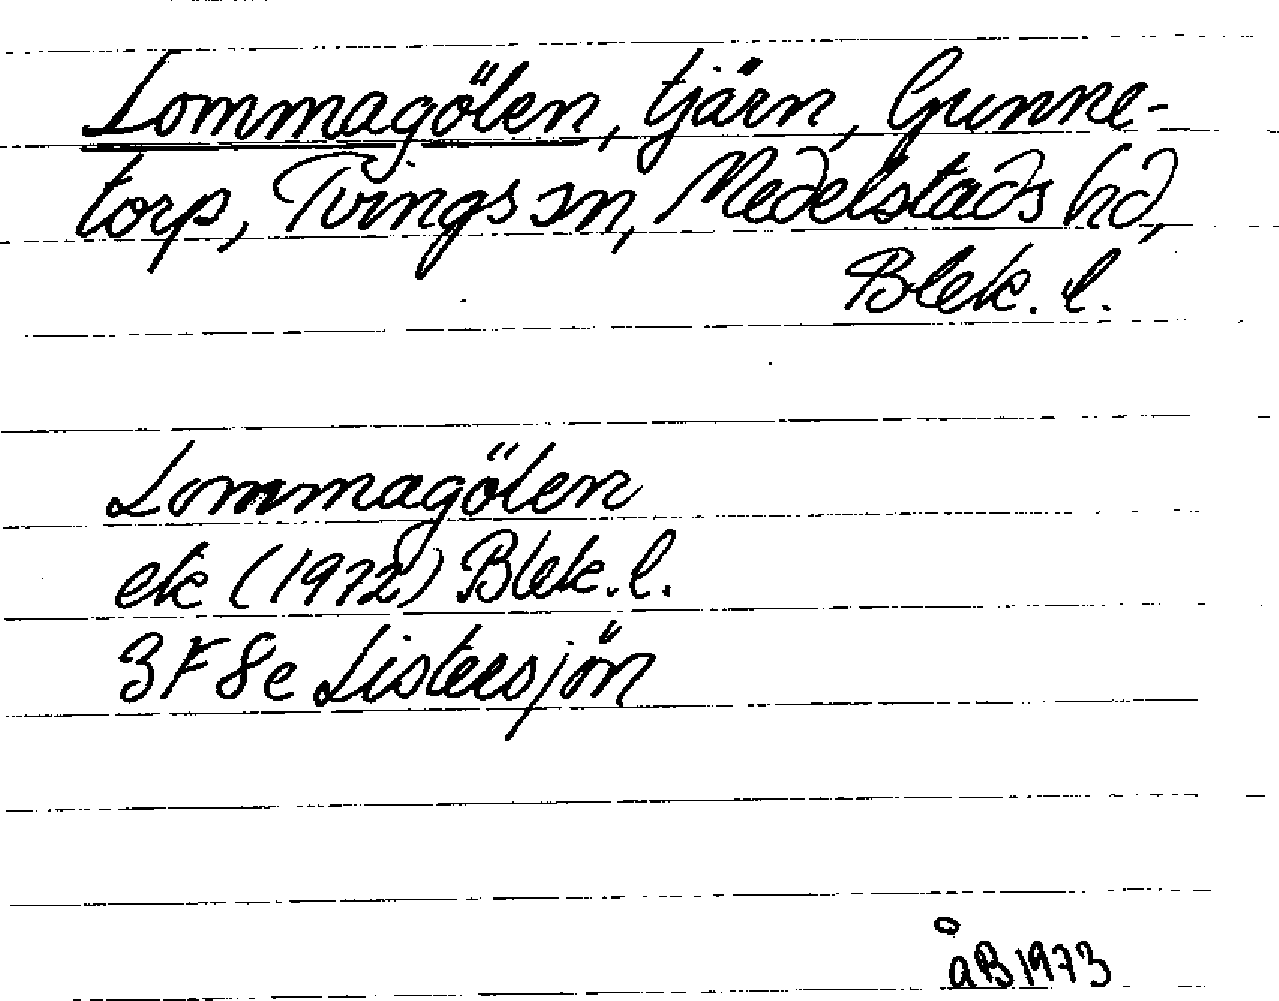 Lommagölen, tjärn, Gunne-
torp, Tvings sn, Medelstads hd,
Blek. l.
Lommagölen
ek (1972) Blek. l.
3F 8e Listersjön
åB 1973